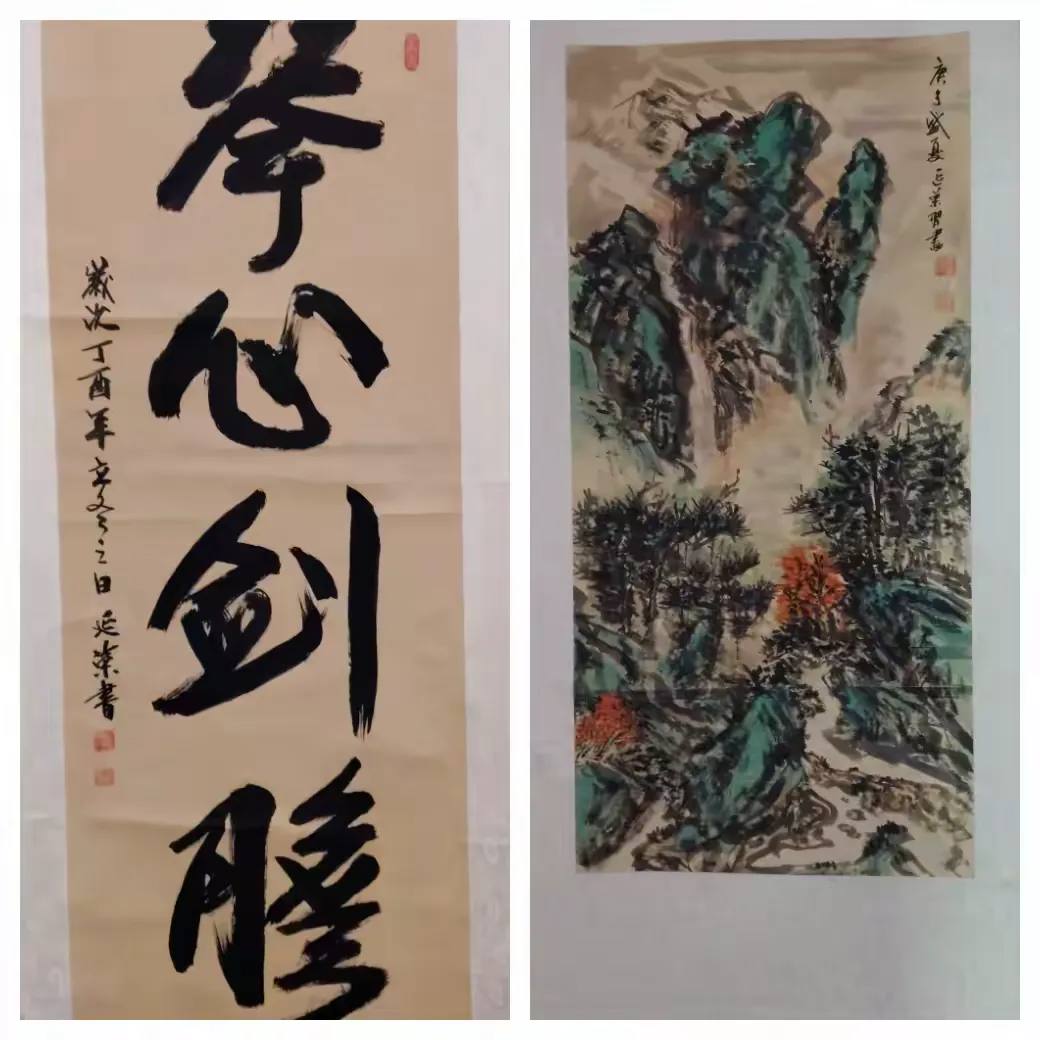 琴心剑胆
岁次丁酉年立冬之日延荣书
庚子盛夏延荣习画